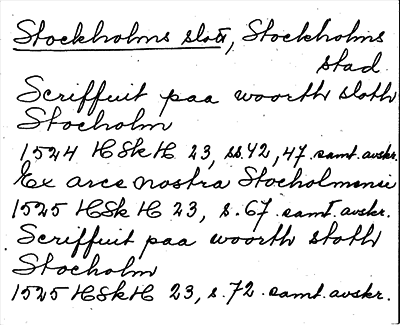 Stockholms slott, Stockholms
stad
Scriffuit paa woorth sloth
Stocholm
1524 HSkH 23, ss. 42, 47. samt. avskr.
Ex arce nostra Stocholmensi
1525 HSkH 23, s. 67. samt. avskr.
Scriffuit paa woorth stoth
Stocholm
1525 HSkH 23, s. 72. samt. avskr.